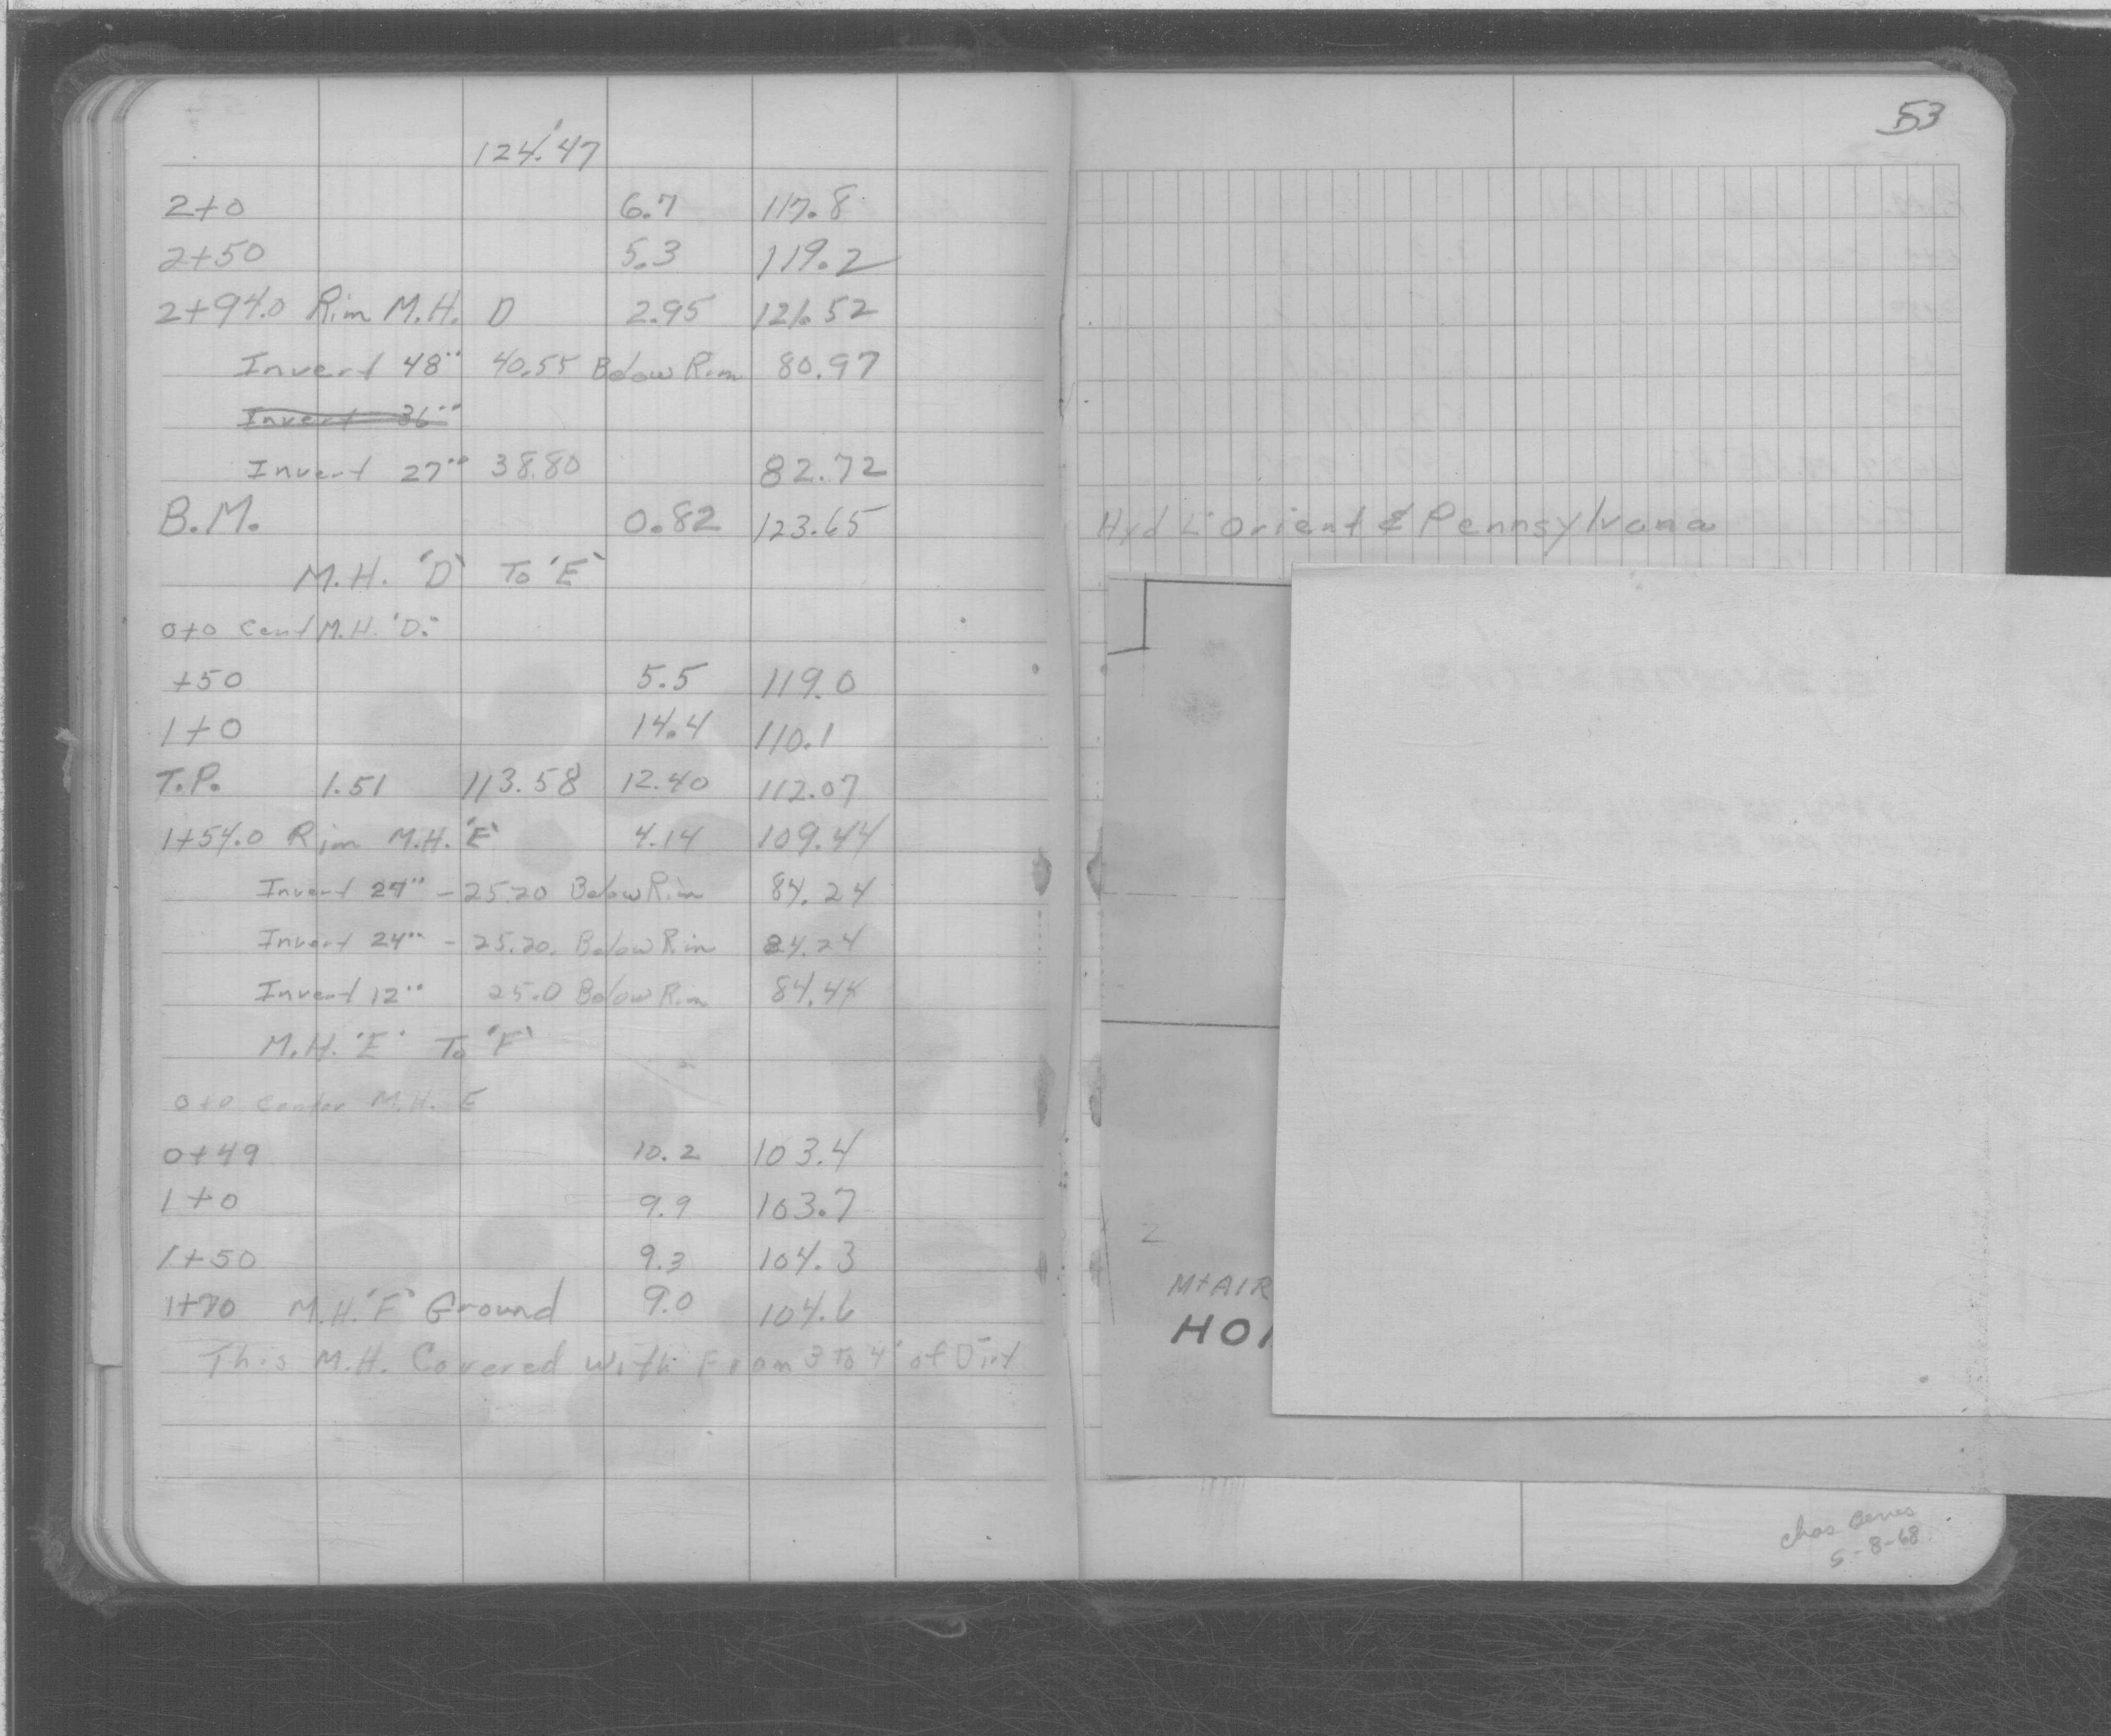 124.47
2+0 6.7 117.8
2+50 5.3 119.2
2+94.0 Rim M.H. D 2.95 121.52
Invert 48" 40.55 Below Rim 80.97
Invert 36"
Invert 27" 38.80 82.72
B.M. 0.82 123.65
M.H. 'D' To 'E'
0+0 Cent M.H. 'D'
+50 5.5 119.0
1+0 14.4 110.1
T.P. 1.51 113.58 12.40 112.07
1+54.0 Rim M.H. 'E' 4.14 109.44
Invert 27" - 25.20 Below Rim 84.24
Invert 24" - 25.20. Below Rim 84.24
Invert 12" 25.0 Below Rim 84.44
M.H. 'E' To 'F'
0+0 Center M.H. E
0+49 10.2 103.4
1+0 9.9 103.7
1+50 9.3 104.3
1+70 M.H. 'F' Ground 9.0 104.6
This M.H. Covered With From 3 To 4' of Dirt
53
Hyd L'Orient & Pennsylvana
2
Mt AIR
HO
Chas
5-8-68